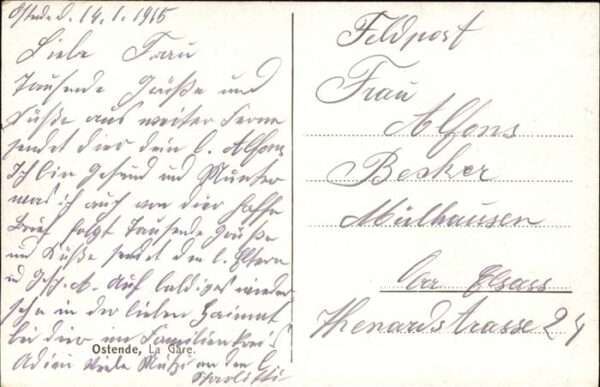 Ostende d. 14.1.1915
Liebe Frau
Tausende Grüße und
Küße aus weiter Ferne
sendet dier dein l. Alfons
Ich bin Gesund und Munter
was ich auch von dier hoffe
Brief folgt Tausende Grüße
und Küße sendet den l. Eltern
u Gesch. A. Auf baldiges wieder
sehn in der lieben Heimat
bei dier im Familienkreis
Adieu viele Müntzi an den G
Ostende, La Gare.
Feldpost
Frau
Alfons
Becker
Mülhausen
Elsass
Thenardstrasse 24